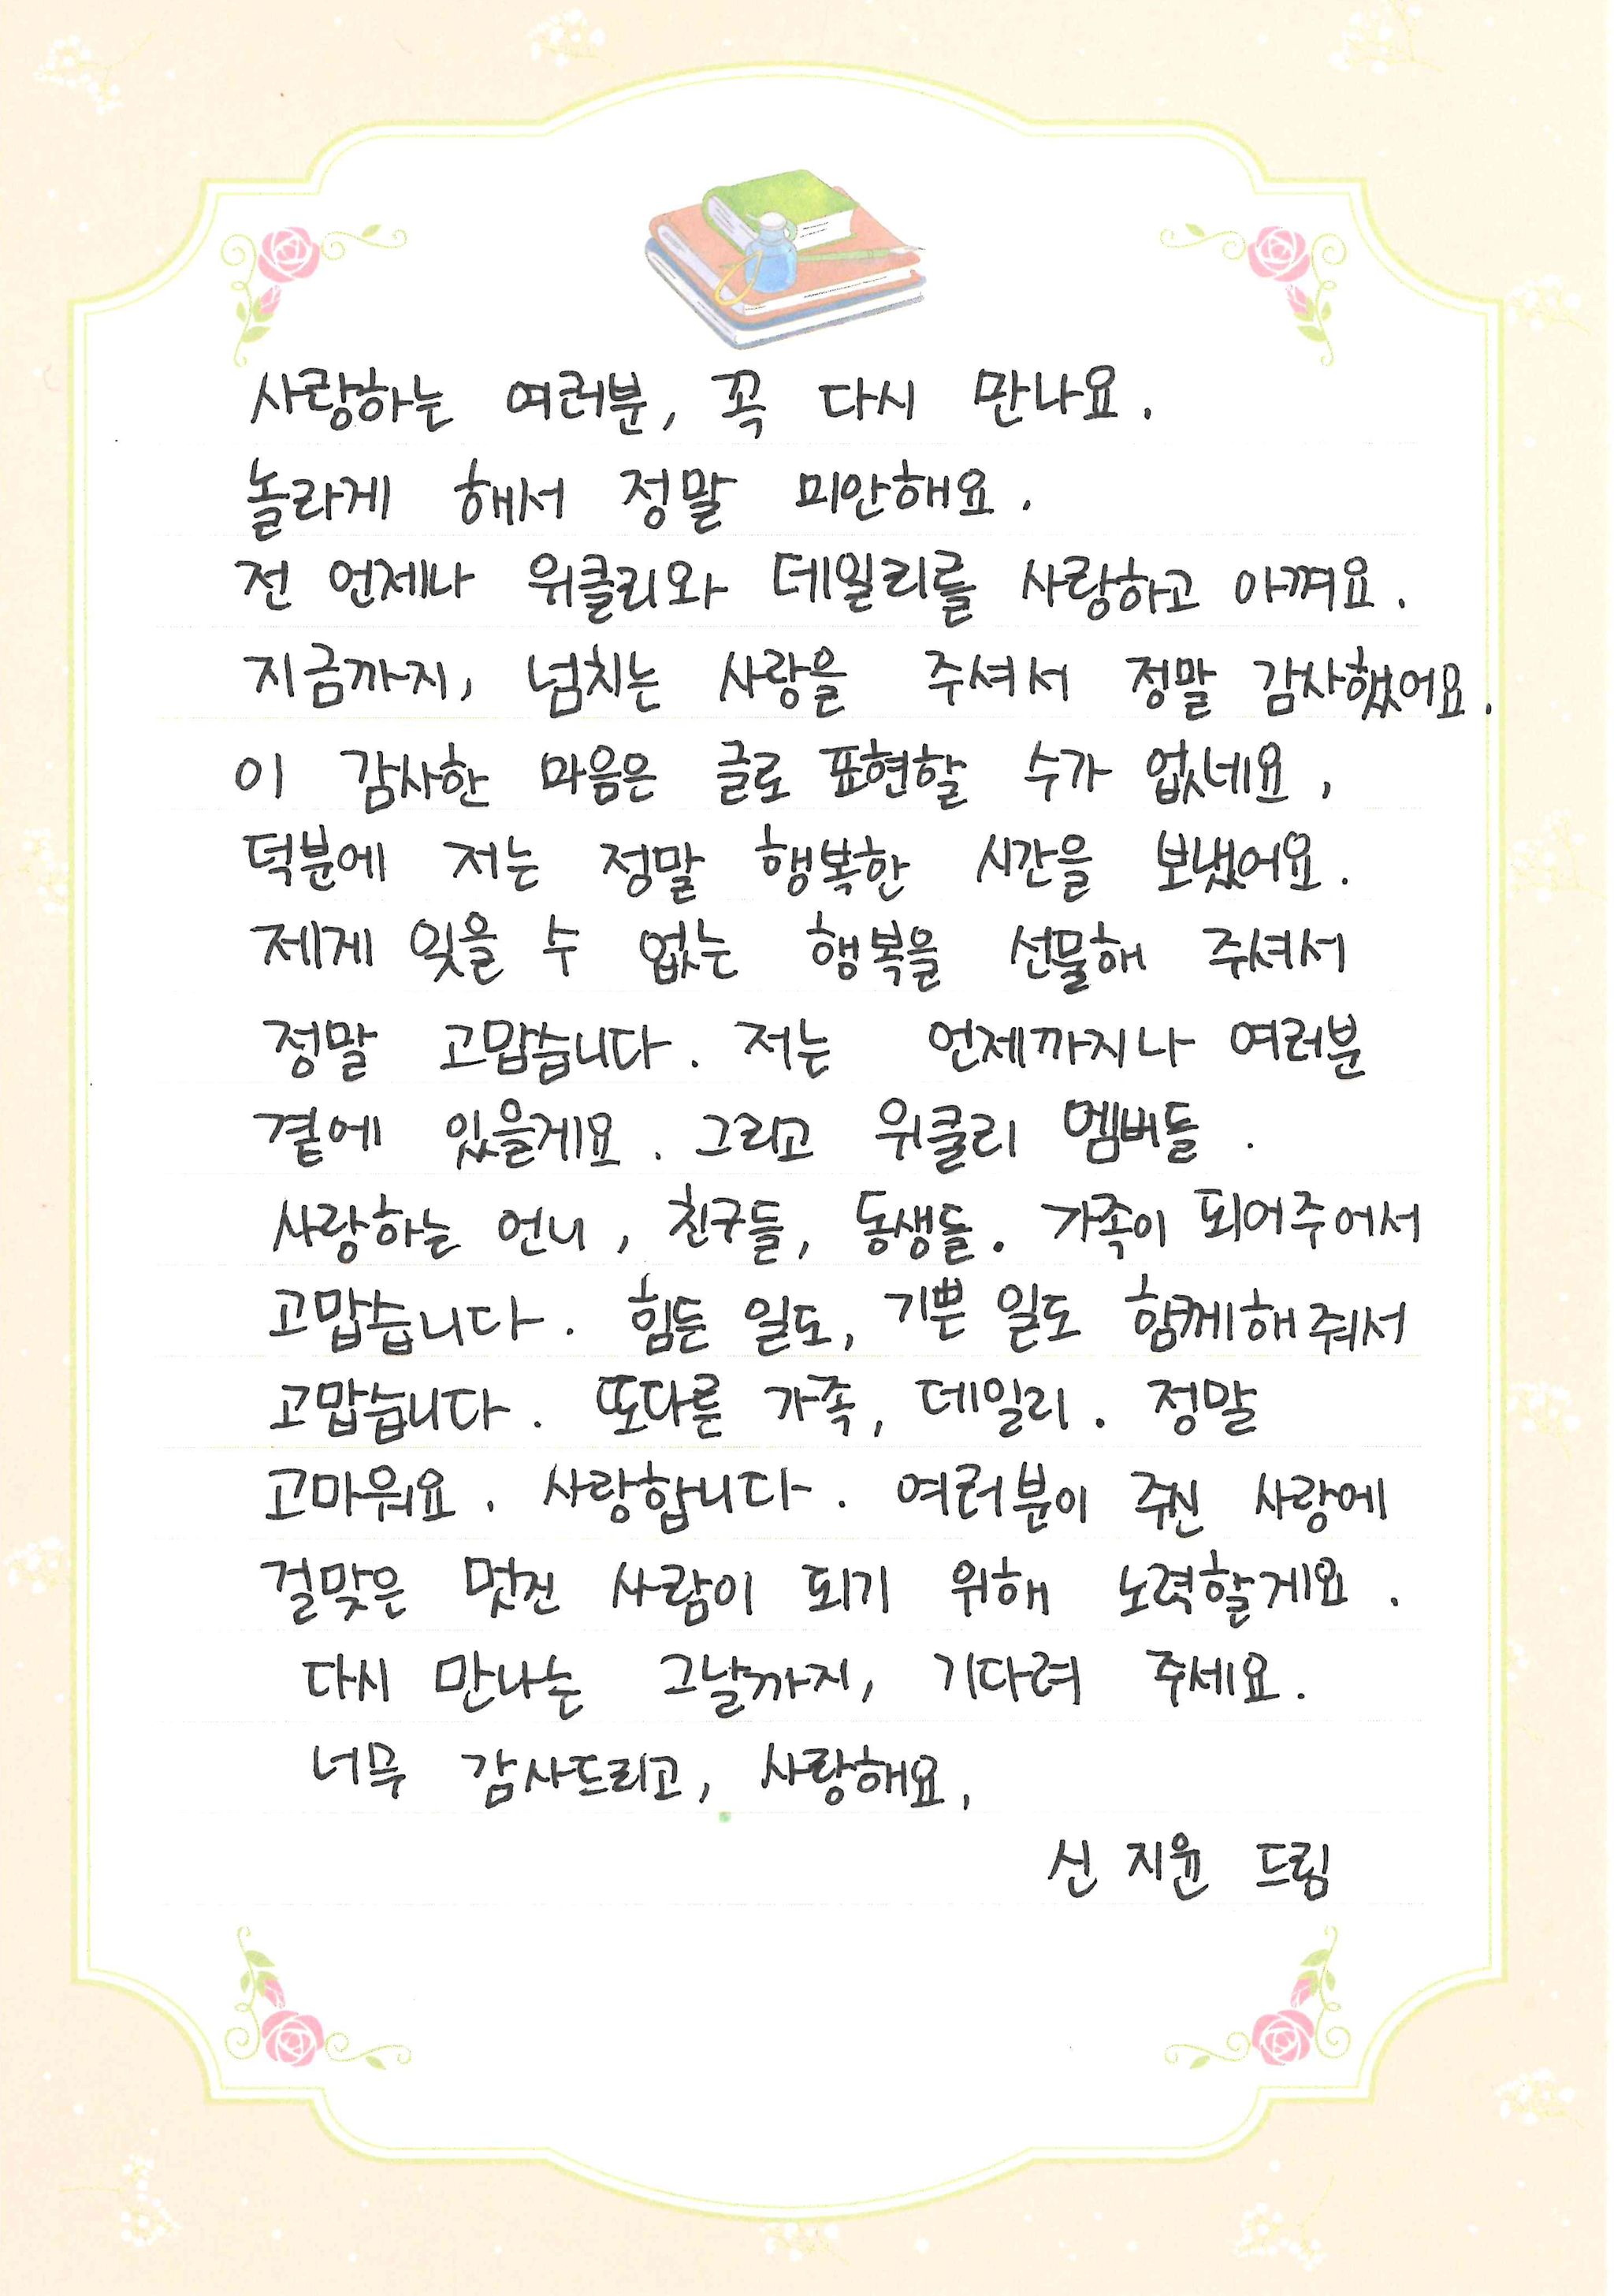 사랑하는 여러분, 꼭 다시 만나요.
놀라게 해서 정말 미안해요.
전 언제나 위클리와 데일리를 사랑하고 아껴요.
지금까지, 넘치는 사랑을 주셔서 정말 감사했어요.
이 감사한 마음은 글로 표현할 수가 없네요,
덕분에 저는 정말 행복한 시간을 보냈어요.
제게 잊을 수 없는 행복을 선물해 주셔서
정말 고맙습니다. 저는 언제까지나 여러분
곁에 있을게요. 그리고 위클리 멤버들.
사랑하는 언니, 친구들, 동생들. 가족이 되어주어서
고맙습니다. 힘든 일도, 기쁜 일도 함께해줘서
고맙습니다. 또다른 가족, 데일리. 정말
고마워요. 사랑합니다. 여러분이 주신 사랑에
걸맞은 멋진 사람이 되기 위해 노력할게요.
다시 만나는 그날까지, 기다려 주세요.
너무 감사드리고, 사랑해요,
신지윤 드림